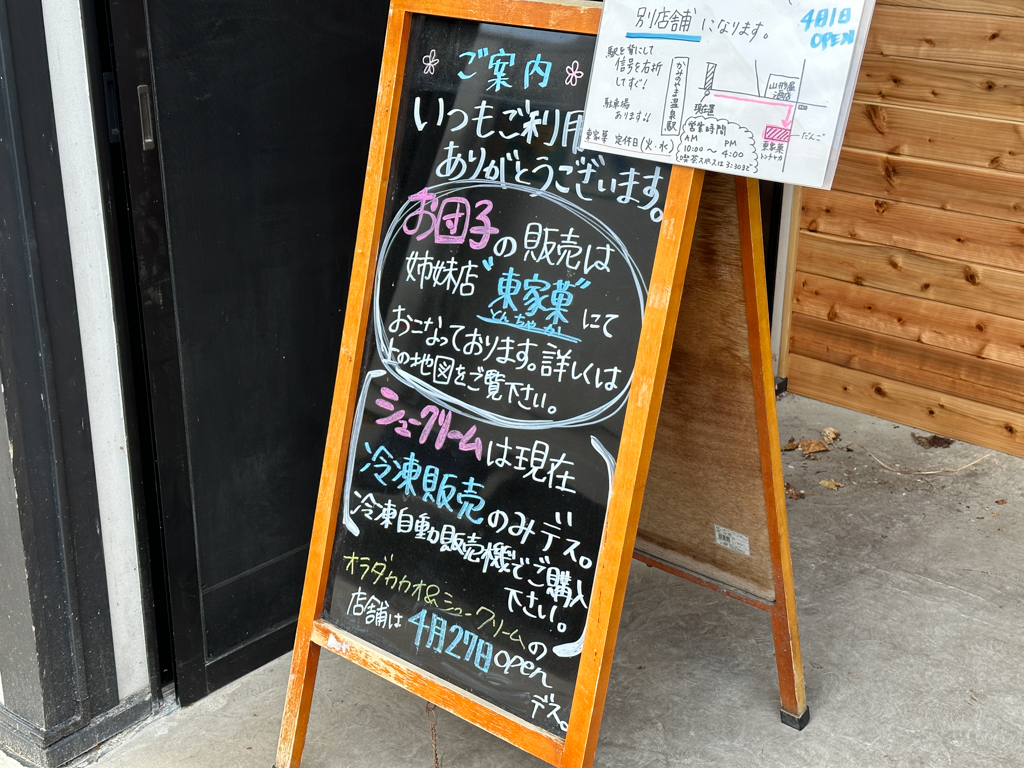 別店舗になります。
4月1日
OPEN
駅を背にして
信号を右折
してすぐ!
駐車場
あります!!
東家菓 定休日(火、水)
かみのやま温泉駅
現在地
営業時間
AM PM
10:00 〜 4:00
だんご
東家菓
トンチャカ
ご案内
いつもご利用
ありがとうございます。
お団子の販売は
姉妹店“東家菓”にて
とんちゃか
おこなっております。詳しくは
上の地図をご覧下さい。
シュークリームは現在
冷凍販売のみデス。
冷凍自動販売機でご購入
下さい。
オラダカカオ&シュークリームの
店舗は4月27日open
デス。